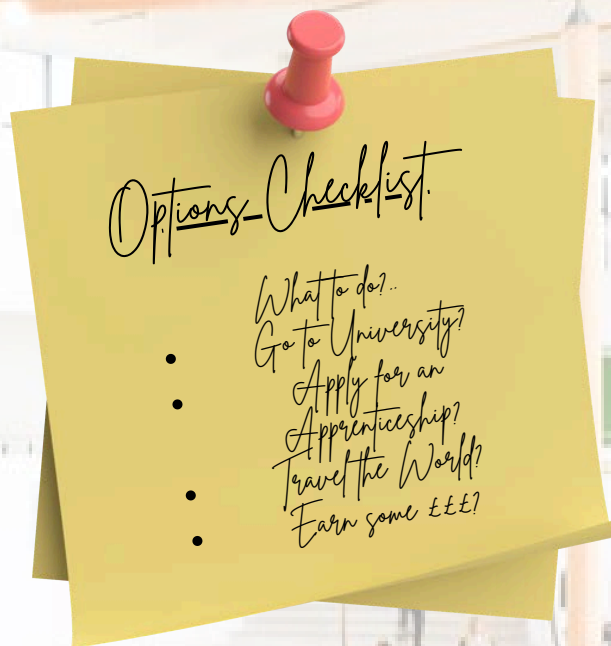 Options Checklist.
What to do?..
• Go to University?
• Apply for an
Apprenticeship?
• Travel the World?
• Earn some £££?